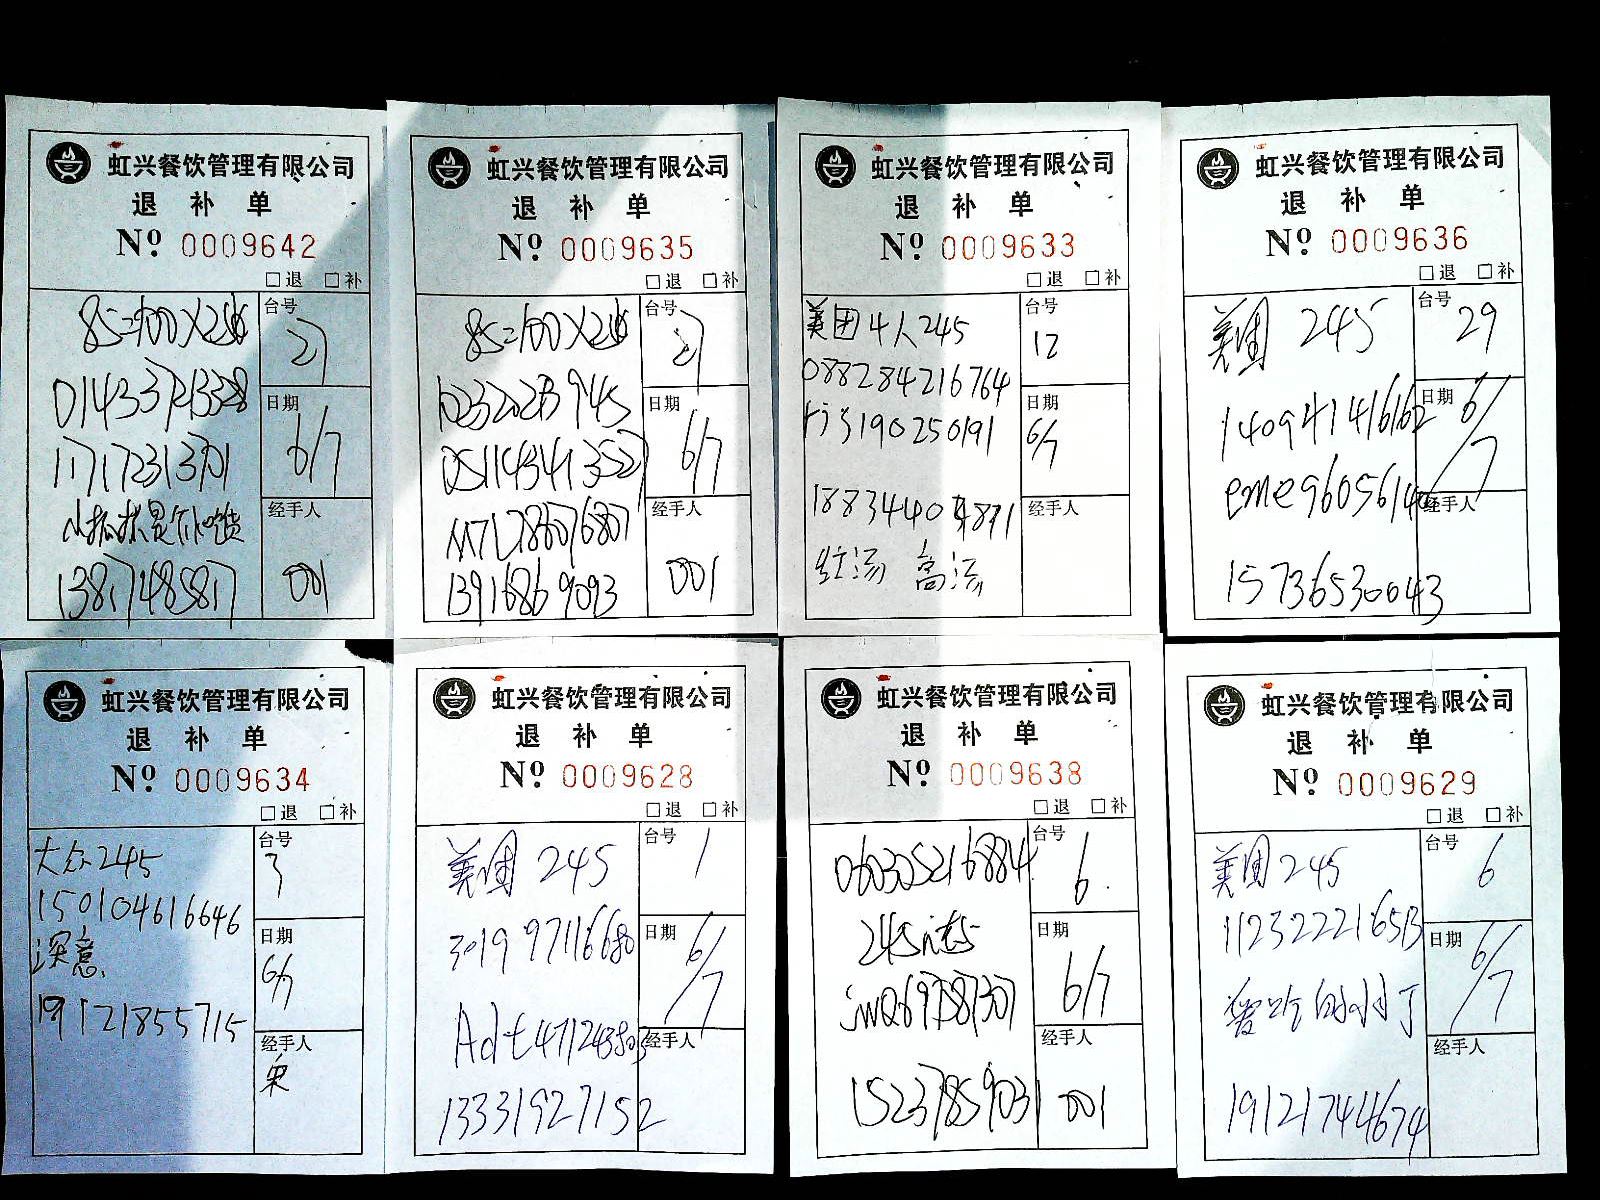 虹兴餐饮管理有限公司
退 补 单
Nº 0009642
□退 □补
85=100X2
台号
27
014337213328
日期
6/7
117172313701
经手人
13817485817
001
虹兴餐饮管理有限公司
退 补 单
Nº 0009635
□退 □补
85=100X2
台号
27
102320213945
日期
6/7
0511434413527
经手人
13916869093
001
虹兴餐饮管理有限公司
退 补 单
Nº 0009633
□退 □补
美团4人245
台号
12
088284216764
日期
6/7
5190250191
经手人
红汤 高汤
虹兴餐饮管理有限公司
退 补 单
Nº 0009636
□退 □补
美团 245
台号
29
140941416162
日期
6/7
经手人
15736530043
虹兴餐饮管理有限公司
退 补 单
Nº 0009634
□退 □补
大众245
台号
3
150104616646
深意
日期
6/7
19121855715
经手人
宋
虹兴餐饮管理有限公司
退 补 单
Nº 0009628
□退 □补
美团 245
台号
1
301997116680
日期
6/7
经手人
13331927152
虹兴餐饮管理有限公司
退 补 单
Nº 0009638
□退 □补
060305216884
台号
6
日期
6/7
经手人
15237859031
001
虹兴餐饮管理有限公司
退 补 单
Nº 0009629
□退 □补
美团 245
台号
6
112322216513
日期
6/7
经手人
19121744674